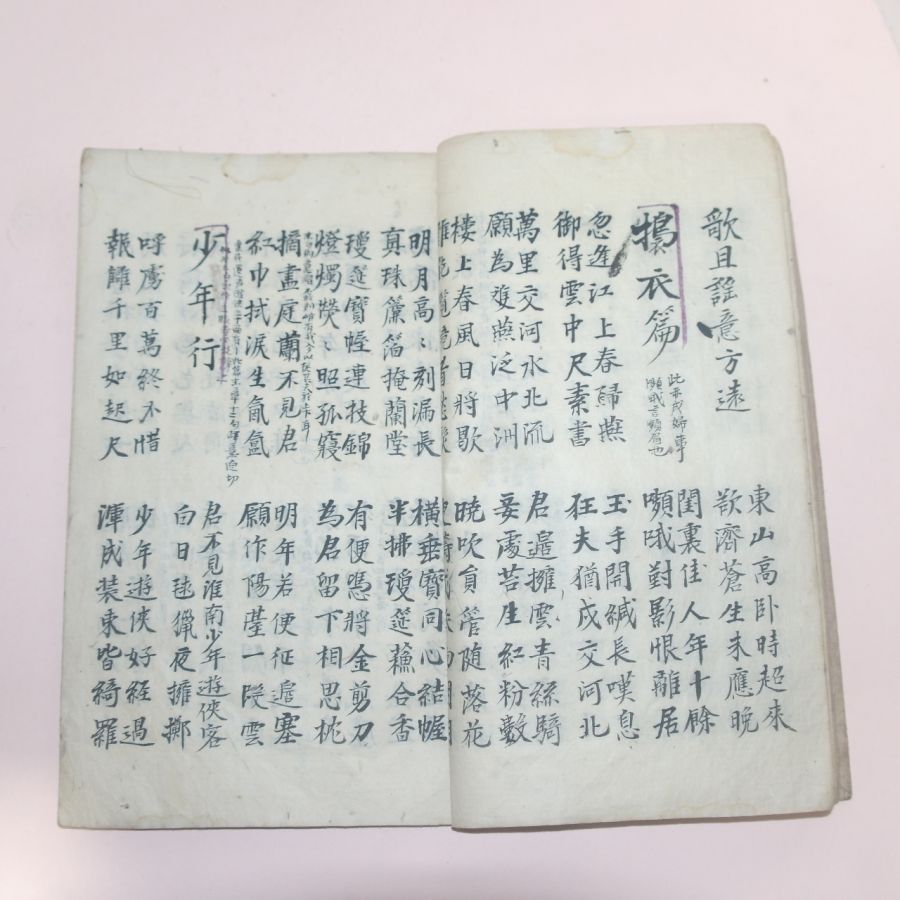 歌且謠意方遠
東山高卧時超來
欲濟蒼生未應晚
擣衣篇
嚬蛾言顰眉也
閨裏佳人年十餘
嚬蛾對影恨離居
忽逢江上春歸燕
御得雲中尺素書
玉手開緘長嘆息
狂夫猶戍交河北
萬里交河水北流
願為雙燕泛中洲
君邊擁雲青絲騎
妾處苔生紅粉數
樓上春風日將歇
曉吹員管隨落花
明月高〻刻漏長
真珠簾箔掩蘭堂
橫垂寶同心結幄
半拂瓊筵蘇合香
瓊筵寶幄連技錦
燈燭熒〻照孤寢
有便憑將金剪刀
為君留下相思枕
摘盡庭蘭不見君
紅巾拭淚生氤氳
明年若便征邊塞
願作陽臺一段雲
少年行
君不見淮南少年遊俠客
白日毬獵夜擁擲
呼盧百萬終不惜
報讎千里如咫尺
少年遊俠好經過
渾成裝束皆綺羅